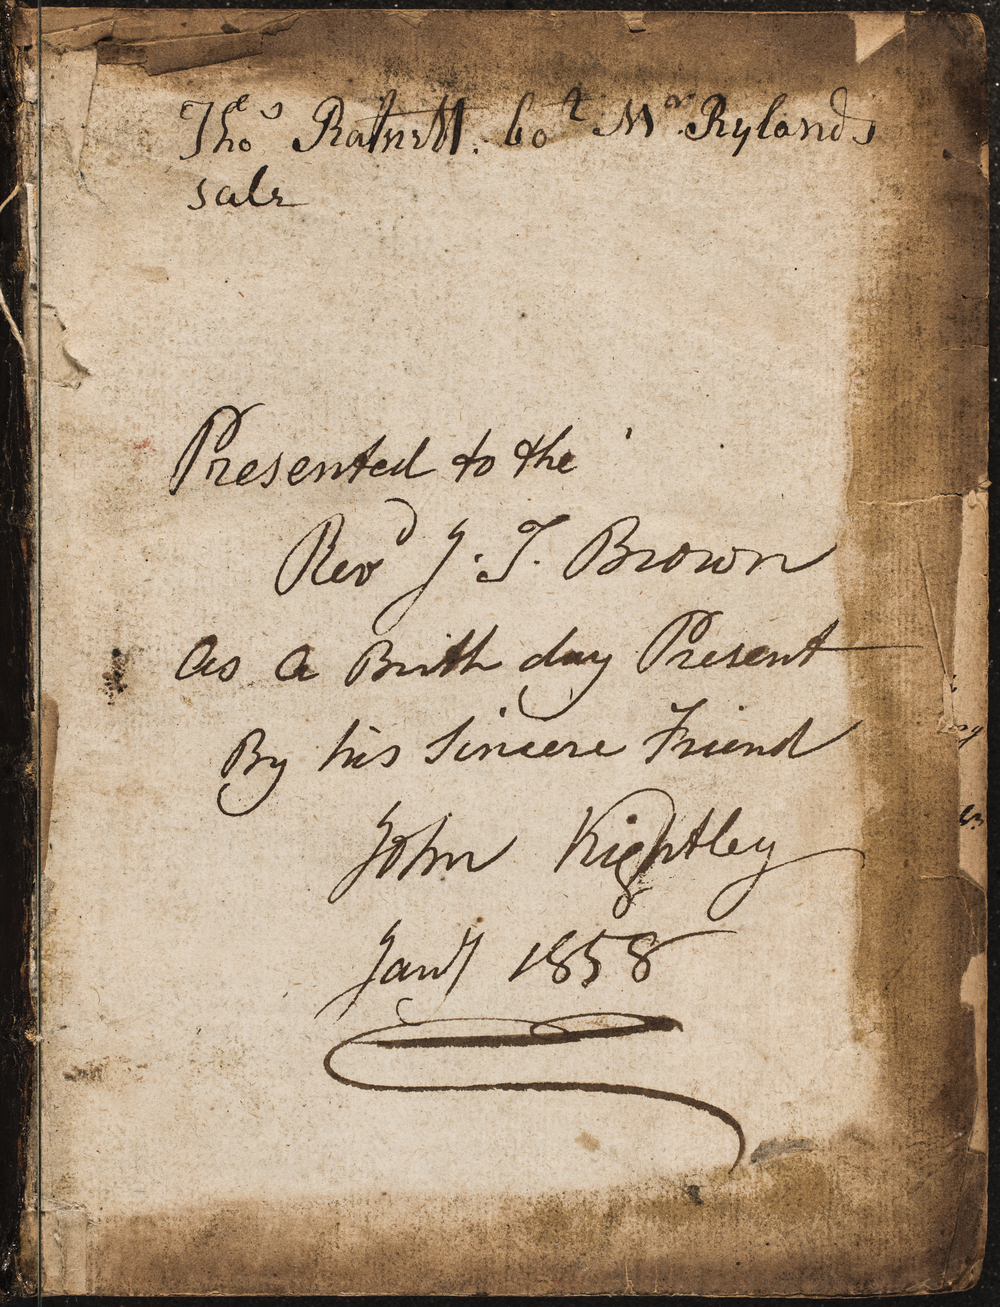 Tho.s Ratnett. bot Mr Rylands
sale
Presented to the
Revd J. T. Brown
as a Birth day Present
By his Sincere Friend
John Kightley
Jany 1858